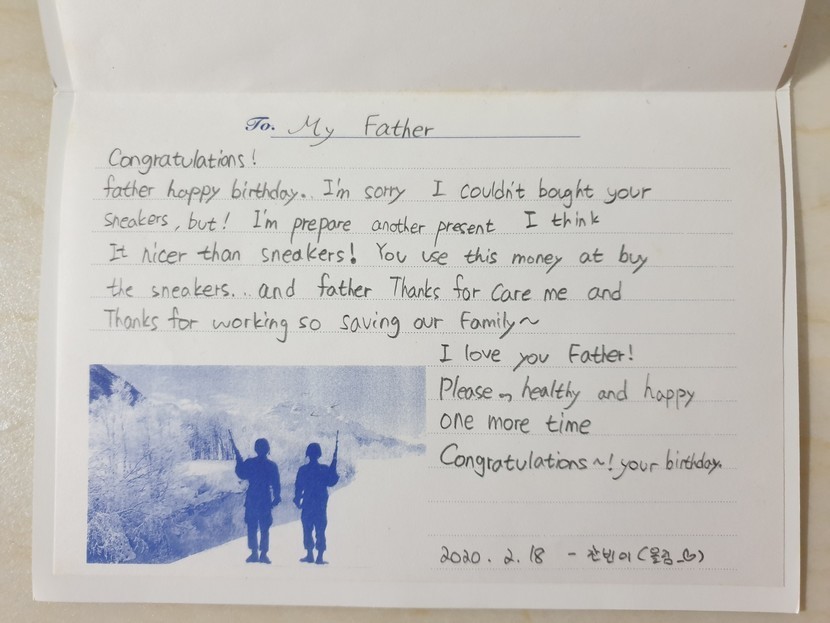 To. My Father
Congratulations!
father happy birthday.. I'm sorry I couldn't bought your
sneakers, but! I'm prepare another present I think
It nicer than sneakers! You use this money at buy
the sneakers... and father Thanks for Care me and
Thanks for working so saving our Family~
I love you Father!
Please healthy and happy
one more time
Congratulations~! your birthday.
2020. 2. 18 - 찬빈이